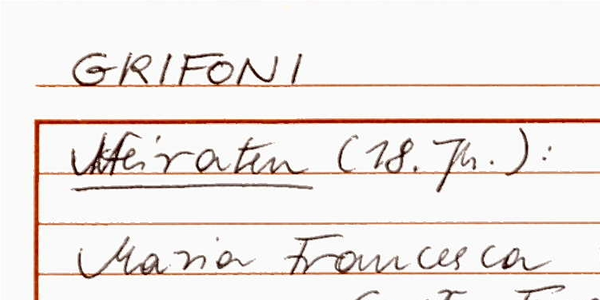 GRIFONI
Heiraten (18. Jh.):
Maria Francesca